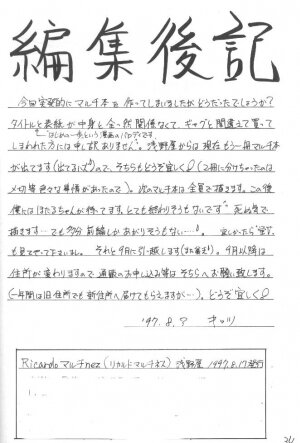 編集後記
今回突発的にマルチ本を作ってしまいましたがどうだったでしょうか?
タイトルと表紙が中身と全然関係なくて、ギャグと間違えて買って
しまわれた方には申し訳ありません。浅野屋からは現在もう一冊マルチ本
が出てます(出てるはず)ので、そちらもどうぞ宜しく(2冊に分けちゃったのは
〆切等色々な事情があったので)。次のマルチ本は全員で描きます。この後
僕にはほたるちゃんが待ってます。とても終わりそうもないです 死ぬ気で
描きます…でも多分前編しかあがりそうもない…。宜しかったら
も見てやって下さいまし。それと9月に引っ越します(また)。9月以降は
住所が変わりますので通販のお申し込み等はそちらへお願い致します。
(一年間は旧住所でも新住所へ届けてもらえますが…)。どうぞ宜しく
'97.8.?
Ricardo マルチnez (リカルドマルチネス) 浅野屋 1997.8.17発行